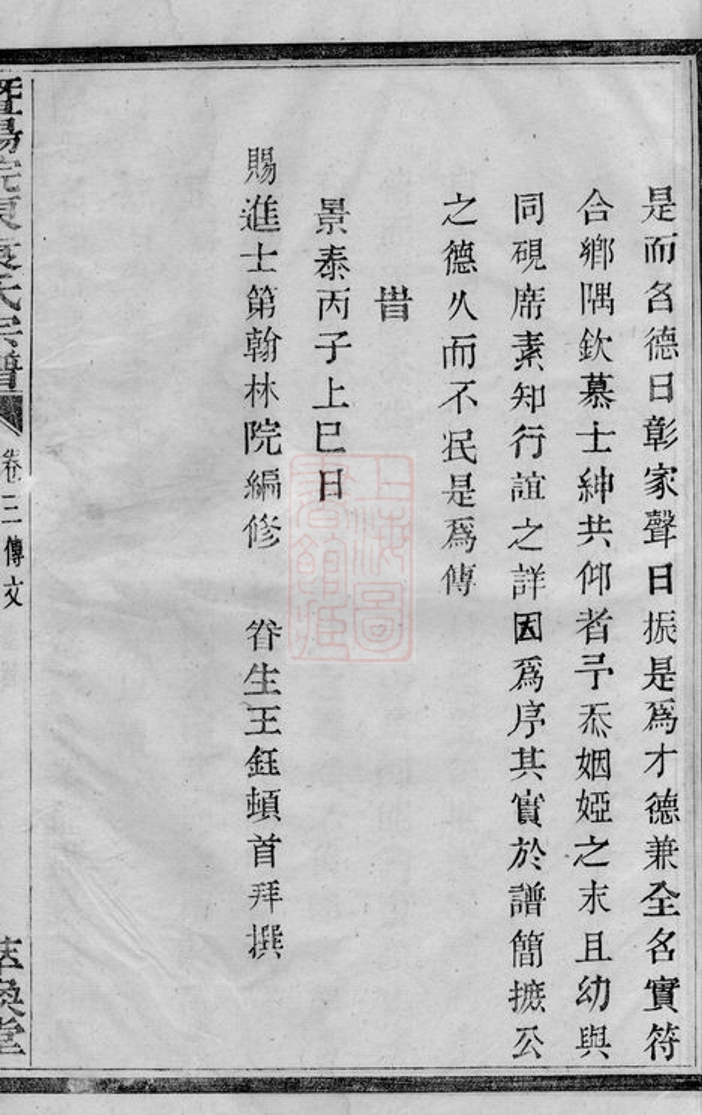 是而名德日彰家聲日振是爲才德兼全名實符
合鄉隅欽慕士紳共仰者予忝姻婭之末且幼與
同硯席素知行誼之詳因爲序其實於譜簡摭公
之德久而不泯是爲傳
旹
景泰丙子上巳日
賜進士第翰林院編修 眷生王鈺頓首拜撰
氏宗譜
卷三傳文
堂
上海圖書館藏